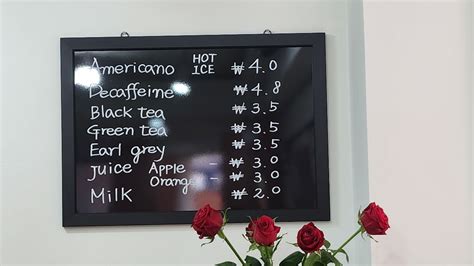 Americano HOT ICE ₩ 4.0
Decaffeine ₩ 4.8
Black tea ₩ 3.5
Green tea ₩ 3.5
Earl grey ₩ 3.5
Juice - Apple ₩ 3.0
Orange - ₩ 3.0
Milk ₩ 2.0